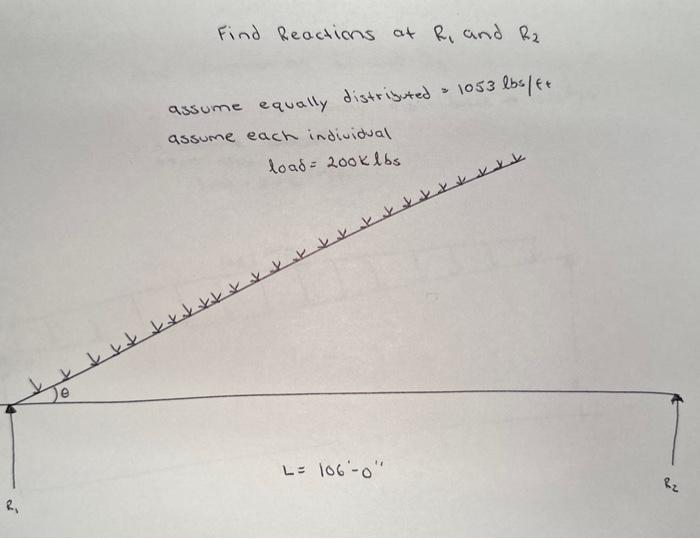 Find Reactions at R₁ and R₂
assume equally distributed = 1053 lbs/ft
assume each individual
load = 200K lbs
θ
L = 106'-0"
R₁
R₂